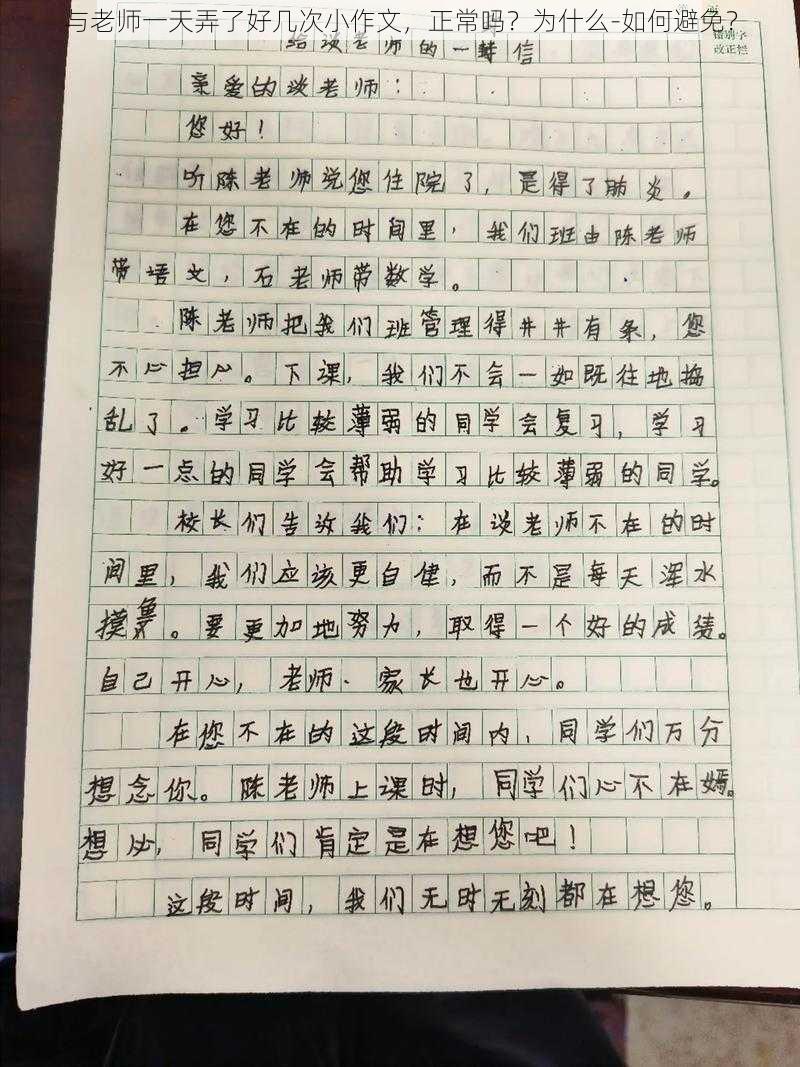 与老师一天弄了好几次小作文，正常吗？为什么-如何避免？
给谈老师的一封信
错别字
改正栏
亲爱的谈老师：
您好！
听陈老师说您住院了，是得了肺炎。
在您不在的时间里，我们班由陈老师
带语文，石老师带数学。
陈老师把我们班管理得井井有条，您
不心担心。下课，我们不会一如既往地捣
乱了。学习比较薄弱的同学会复习，学习
好一点的同学会帮助学习比较薄弱的同学。
校长们告诉我们：在谈老师不在的时
间里，我们应该更自律，而不是每天浑水
摸鱼。要更加地努力，取得一个好的成绩。
自己开心，老师、家长也开心。
在您不在的这段时间内，同学们万分
想念你。陈老师上课时，同学们心不在嫣。
想必，同学们肯定是在想您吧！
这段时间，我们无时无刻都在想您。